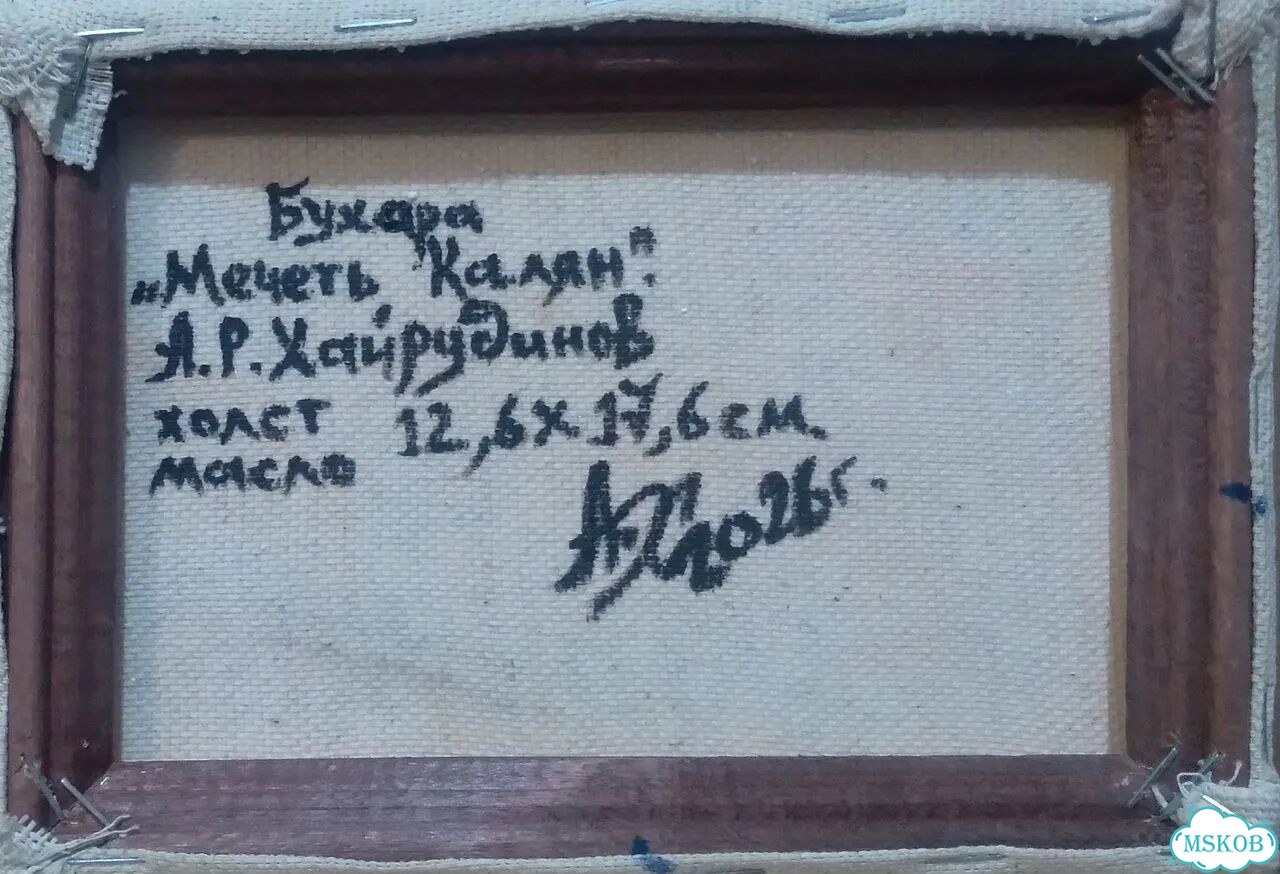 Бухара
„Мечеть "Калян".
А.Р.Хайрудинов
холст 12,6х17,6см.
масло
2026г.
MSKOB